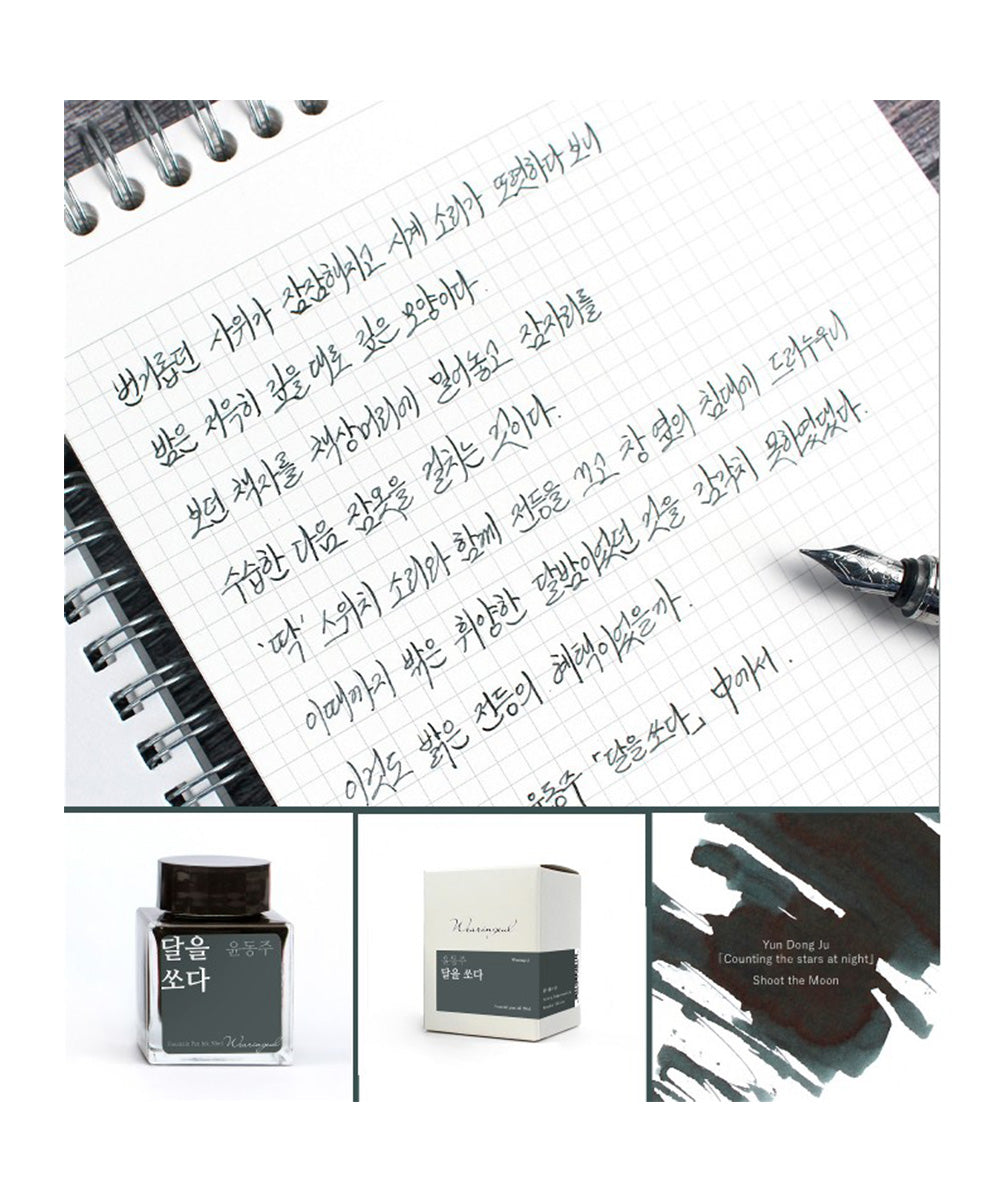 번거롭던 사위가 잠잠해지고 시계 소리가 또렷하다 보니
밤은 저윽히 깊을 대로 깊은 모양이다.
보던 책자를 책상머리에 밀어놓고 잠자리를
수습한 다음 잠옷을 걸치는 것이다.
'딱' 스위치 소리와 함께 전등을 끄고 창 옆의 침대에 드러누우니
이때까지 밖은 휘양한 달밤이었던 것을 감각치 못하였댔다.
이것도 밝은 전등의 혜택이었을까.
윤동주 「달을 쏘다」 中에서.
달을 쏘다
윤동주
Fountain Pen Ink 30ml
Wearingeul
Wearingeul
윤동주
달을 쏘다
Yun Dong Ju
「Counting the stars at night」
Shoot the Moon